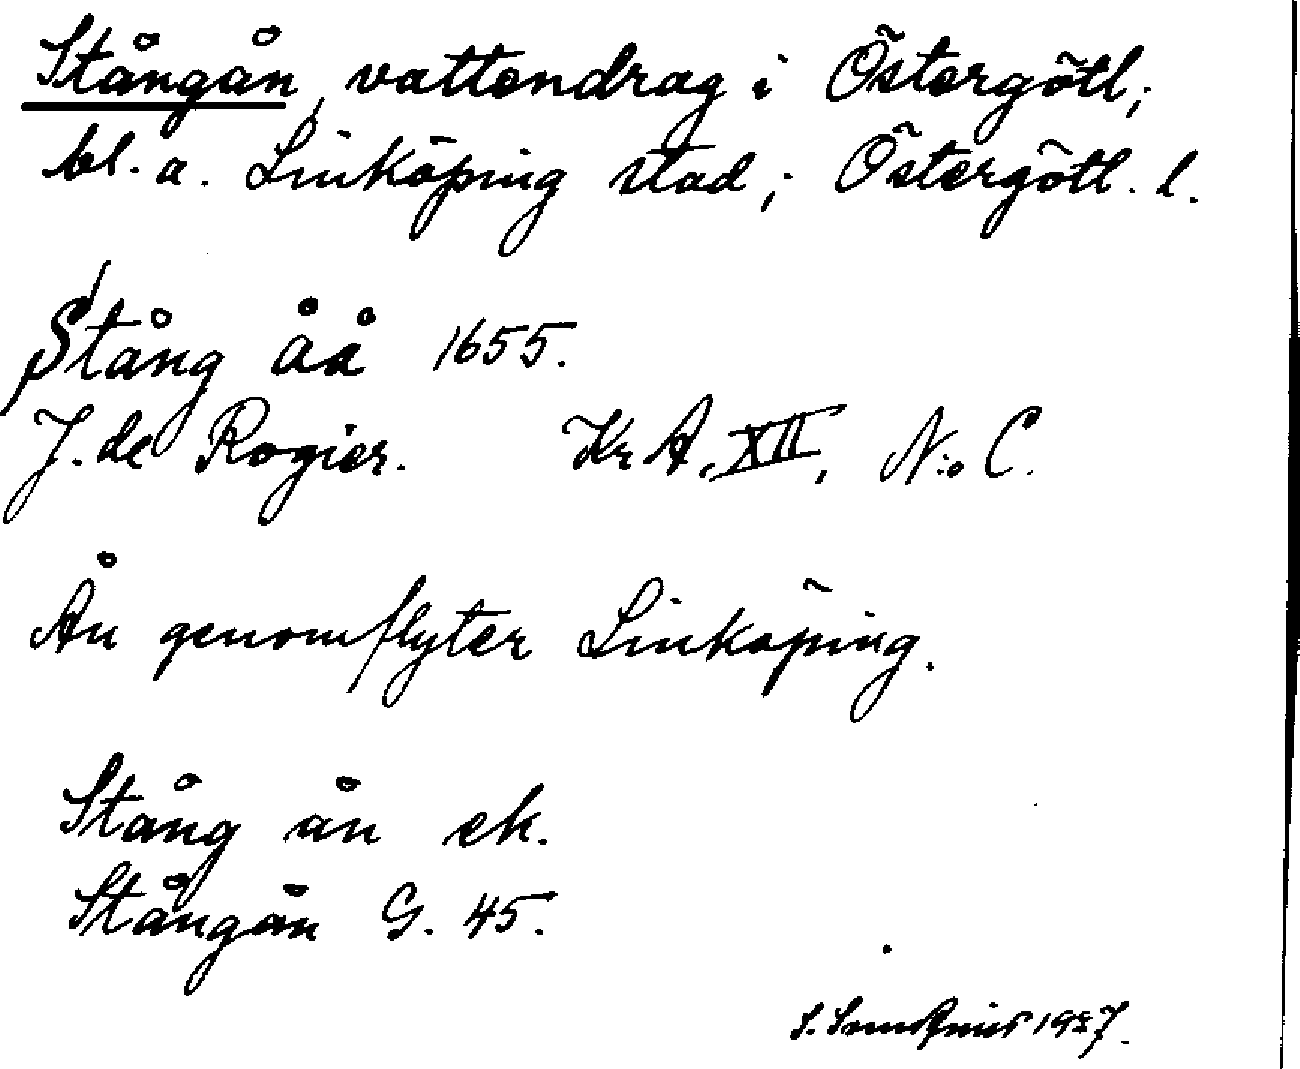 Stångån, vattendrag i Östergötl;
bl. a. Linköping stad; Östergötl. l.
Stång åå 1655.
J. de Rogier. Kr A, XII, N:o C.
Ån genomflyter Linköping.
Stång ån ek.
Stångån G. 45.
S. 1927.